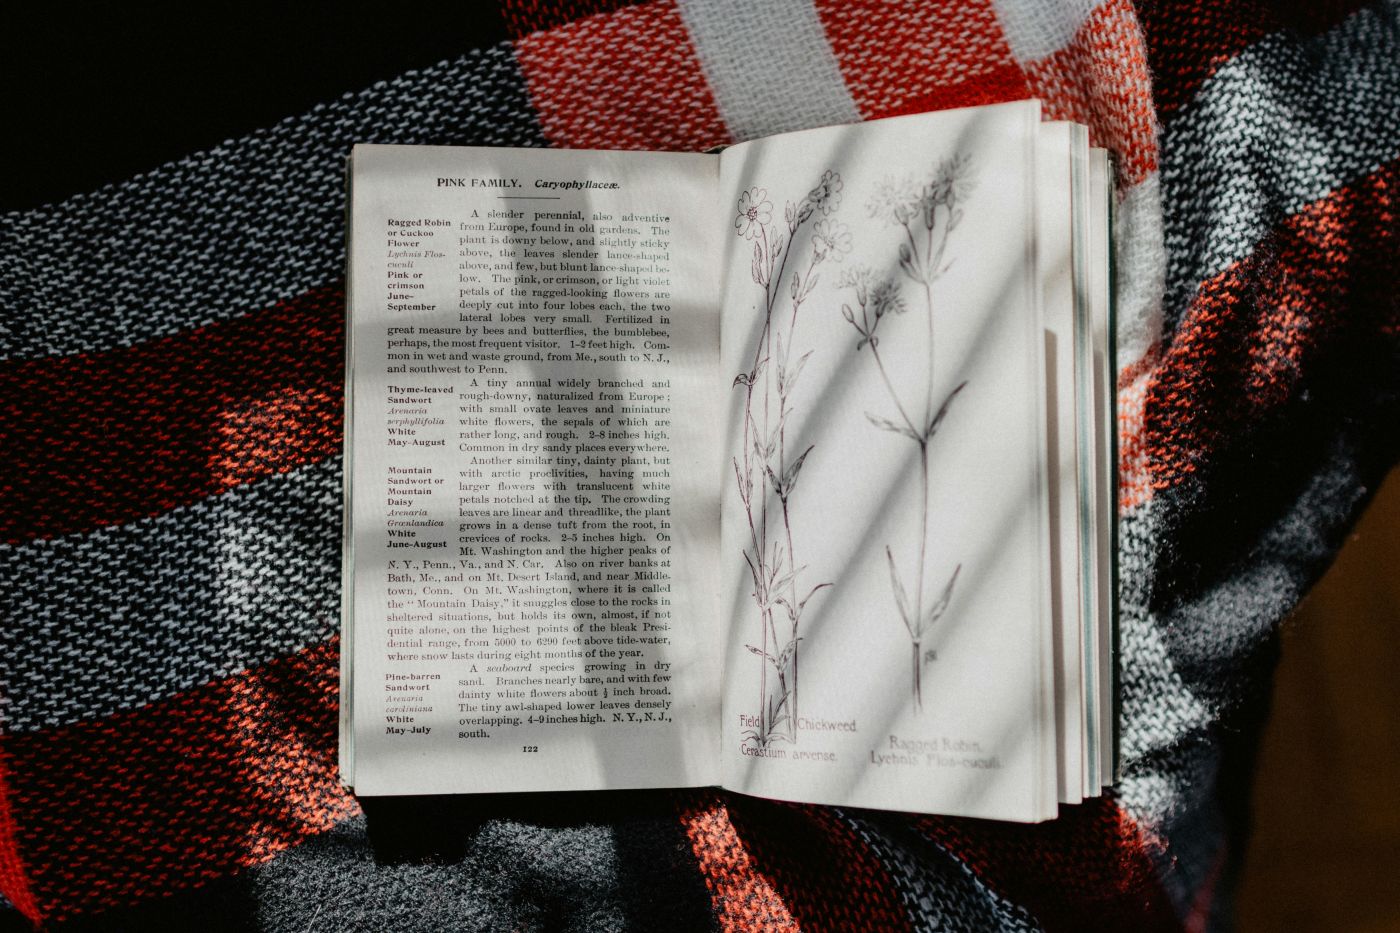 PINK FAMILY. Caryophyllaceæ.
Ragged Robin
or Cuckoo
Flower
Lychnis Flos-
cuculi
Pink or
crimson
June–
September
A slender perennial, also adventive
from Europe, found in old gardens. The
plant is downy below, and slightly sticky
above, the leaves slender lance-shaped
above, and few, but blunt lance-shaped be-
low. The pink, or crimson, or light violet
petals of the ragged-looking flowers are
deeply cut into four lobes each, the two
lateral lobes very small. Fertilized in
great measure by bees and butterflies, the bumblebee,
perhaps, the most frequent visitor. 1–2 feet high. Com-
mon in wet and waste ground, from Me., south to N. J.,
and southwest to Penn.
Thyme-leaved
Sandwort
Arenaria
serphyllifolia
White
May–August
A tiny annual widely branched and
rough-downy, naturalized from Europe;
with small ovate leaves and miniature
white flowers, the sepals of which are
rather long, and rough. 2–8 inches high.
Common in dry sandy places everywhere.
Mountain
Sandwort or
Mountain
Daisy
Arenaria
Grœnlandica
White
June–August
Another similar tiny, dainty plant, but
with arctic proclivities, having much
larger flowers with translucent white
petals notched at the tip. The crowding
leaves are linear and threadlike, the plant
grows in a dense tuft from the root, in
crevices of rocks. 2–5 inches high. On
Mt. Washington and the higher peaks of
N. Y., Penn., Va., and N. Car. Also on river banks at
Bath, Me., and on Mt. Desert Island, and near Middle-
town, Conn. On Mt. Washington, where it is called
the "Mountain Daisy," it snuggles close to the rocks in
sheltered situations, but holds its own, almost, if not
quite alone, on the highest points of the bleak Presi-
dential range, from 5000 to 6290 feet above tide-water,
where snow lasts during eight months of the year.
Pine-barren
Sandwort
Arenaria
caroliniana
White
May–July
A seaboard species growing in dry
sand. Branches nearly bare, and with few
dainty white flowers about ½ inch broad.
The tiny awl-shaped lower leaves densely
overlapping. 4–9 inches high. N. Y., N. J.,
south.
122
Field Chickweed.
Cerastium arvense.
Ragged Robin.
Lychnis Flos-cuculi.